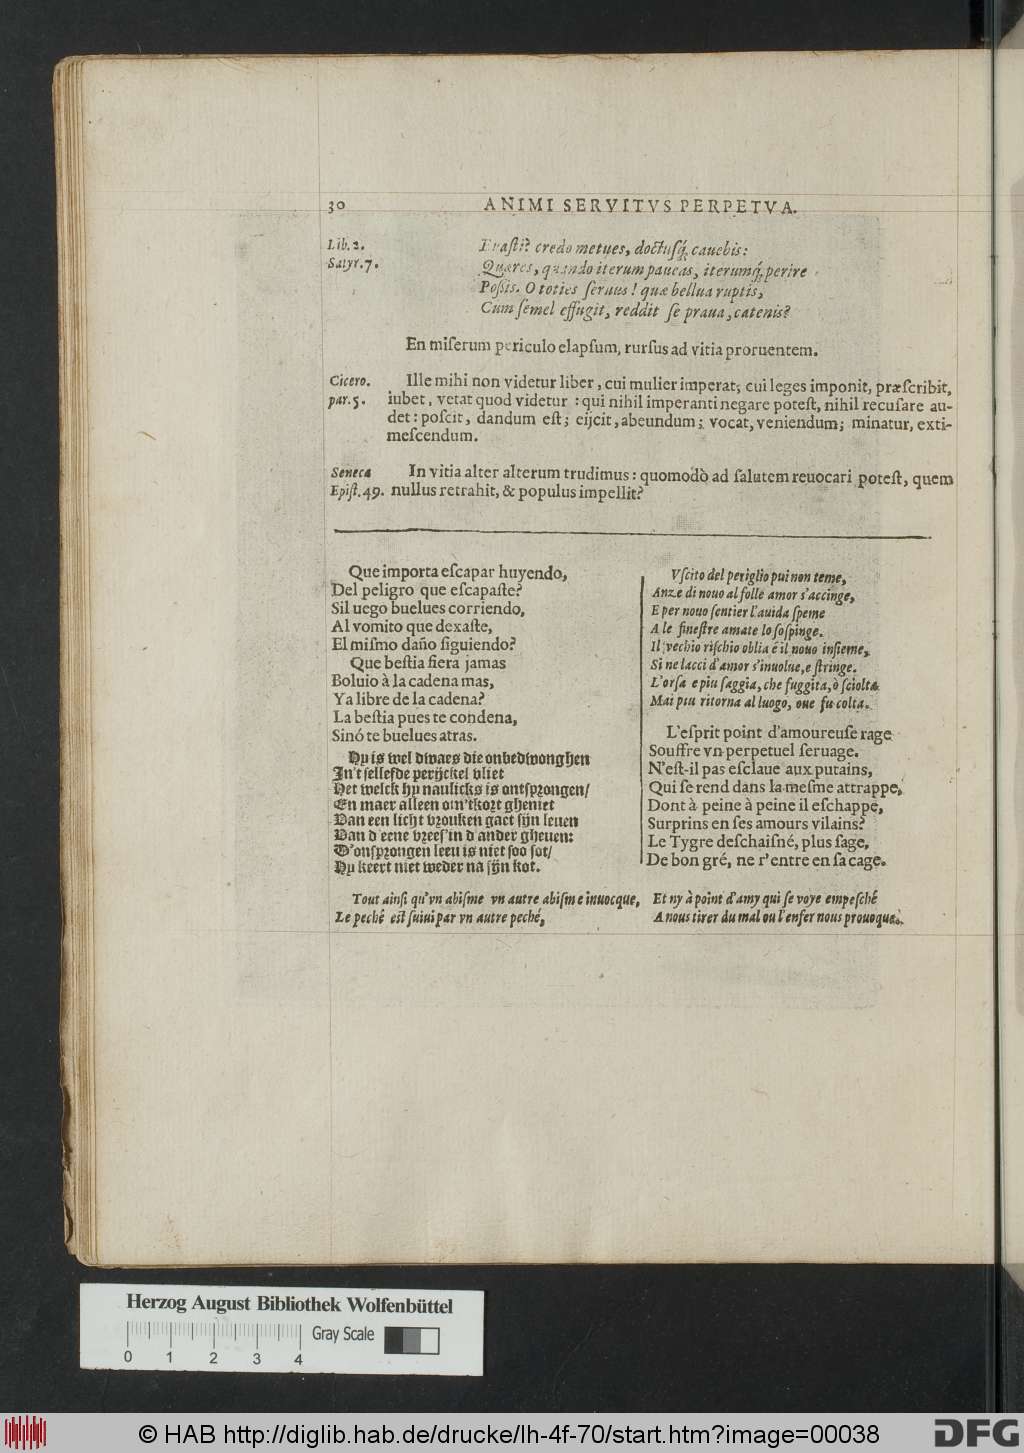 30 ANIMI SERVITVS PERPETVA.
Lib. 2.
Satyr. 7.
Evasti? credo metues, doctusq́, cauebis:
Quæres, quando iterum paueas, iterumq́, perire
Poßis. O toties seruus! quæ bellua ruptis,
Cum semel effugit, reddit se praua, catenis?
En miserum periculo elapsum, rursus ad vitia proruentem.
Cicero.
par. 5.
Ille mihi non videtur liber, cui mulier imperat; cui leges imponit, præscribit,
iubet, vetat quod videtur : qui nihil imperanti negare potest, nihil recusare au-
det : poscit, dandum est; eijcit, abeundum; vocat, veniendum; minatur, exti-
mescendum.
Seneca
Epist. 49.
In vitia alter alterum trudimus : quomodò ad salutem reuocari potest, quem
nullus retrahit, & populus impellit?
Que importa escapar huyendo,
Del peligro que escapaste?
Sil uego buelues corriendo,
Al vomito que dexaste,
El mismo daño siguiendo?
Que bestia fiera jamas
Boluio à la cadena mas,
Ya libre de la cadena?
La bestia pues te condena,
Sinó te buelues atras.
Hy is wel dwaes die onbedwonghen
In't selfsde perijckel vliet
Het welck hy naulicks is ontsprongen/
En maer alleen om't kort gheniet
Van een licht vrouken gaet sijn leuen
Van d'eene vrees' in d'ander gheuen:
D'onsprongen leeu is niet soo sot/
Hy keert niet weder na sijn kot.
Vscito del periglio pui non teme,
Anze di nouo al folle amor s'accinge,
E per nouo sentier l'auida speme
A le finestre amate lo sospinge.
Il vechio rischio oblia é il nouo insieme,
Si ne lacci d'amor s'inuolue, e stringe.
L'orsa e piu saggia, che fuggita, ò sciolta
Mai piu ritorna al luogo, oue fu colta.
L'esprit point d'amoureuse rage
Souffre vn perpetuel seruage.
N'est-il pas esclaue aux putains,
Qui se rend dans la mesme attrappe,
Dont à peine à peine il eschappe,
Surprins en ses amours vilains?
Le Tygre deschaisné, plus sage,
De bon gré, ne r'entre en sa cage.
Tout ainsi qu'vn abisme vn autre abisme inuocque,
Le peché est suiui par vn autre peché,
Et ny à point d'amy qui se voye empesché
A nous tirer du mal ou l'enfer nous prouoque.
Herzog August Bibliothek Wolfenbüttel
0 1 2 3 4 Gray Scale
© HAB http://diglib.hab.de/drucke/lh-4f-70/start.htm?image=00038
DFG